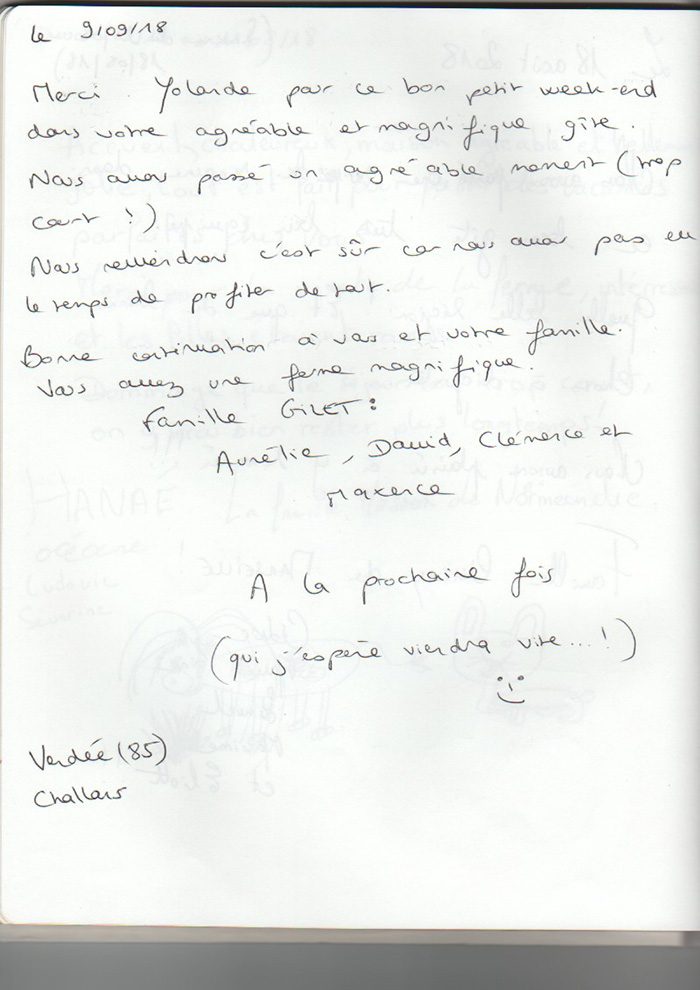 le 9/09/18
Merci Yolande pour ce bon petit week-end
dans votre agréable et magnifique gîte.
Nous avons passé un agréable moment (trop
court !)
Nous reviendrons c'est sûr car nous avons pas eu
le temps de profiter de tout.
Bonne continuation à vous et votre famille.
Vous avez une ferme magnifique.
Famille GILET :
Aurélie, David, Clémence et
Maxence
A la prochaine fois
(qui j'espère viendra vite...!)
Vendée (85)
Challans